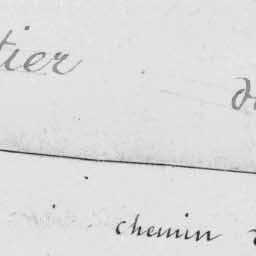 tier
chemin